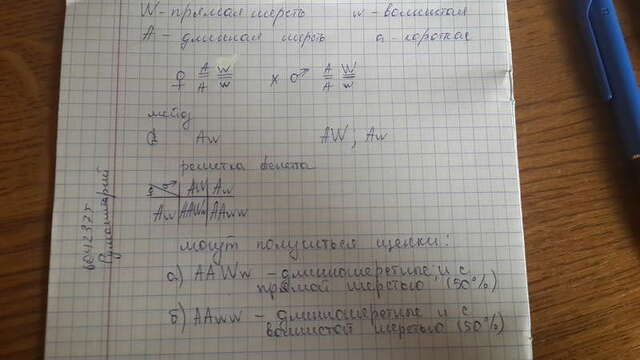 W - прямая шерсть w - волнистая
A - длинная шерсть a - короткая
♀ A W x ♂ A W
A w A w
мейоз
Aw AW ; Aw
решетка
♀ ♂ AW Aw
Aw AAWw AAww
могут получиться щенки:
а) AAWw - длинношерстные и с
прямой шерстью (50%)
б) AAww - длинношерстные и с
волнистой шерстью (50%)